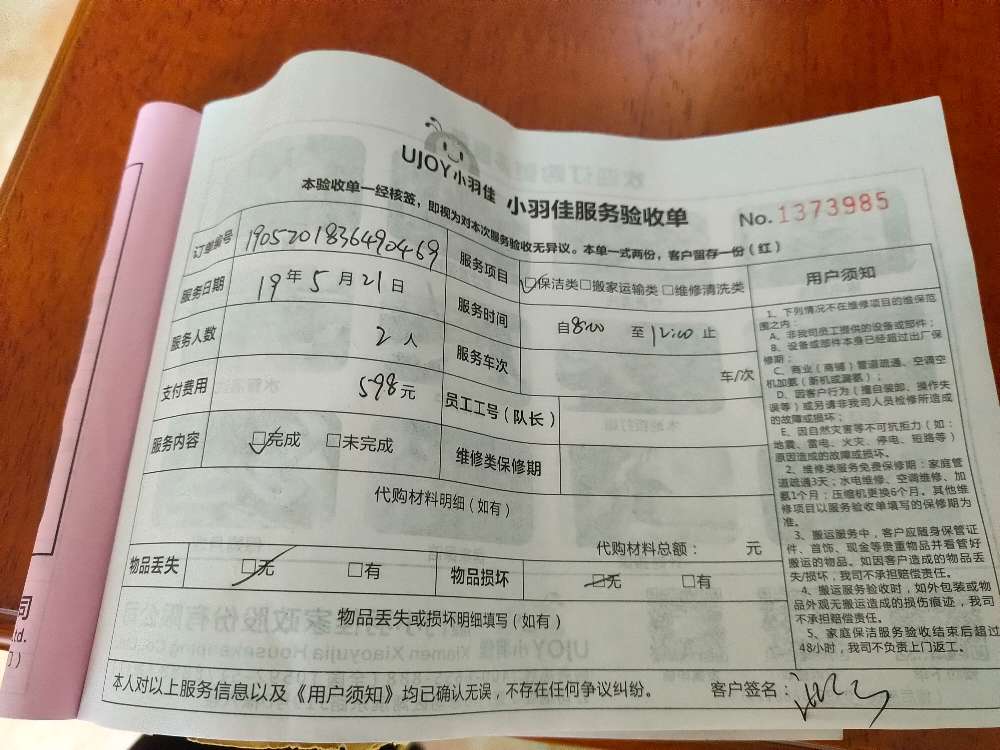 UJOY小羽佳 小羽佳服务验收单 No.1373985
本验收单一经核签，即视为对本次服务验收无异议。本单一式两份，客户留存一份（红）
订单编号 1905201836490469 服务项目 保洁类□搬家运输类□维修清洗类
服务日期 19年5月21日 服务时间 自8:00至12:00止
服务人数 2人 服务车次 车/次
支付费用 598元 员工工号（队长）
服务内容 □完成 □未完成 维修类保修期
代购材料明细（如有）
代购材料总额： 元
物品丢失 □无 □有 物品损坏 □无 □有
物品丢失或损坏明细填写（如有）
用户须知
1、下列情况不在维修项目的维保范
围之内：
A、非我司员工提供的设备或部件；
B、设备或部件本身已经超过出厂保
修期；
C、商业（商铺）管道疏通、空调空
机加氨（新机或漏氨）；
D、因客户行为（擅自装卸、操作失
误等）或另请非我司人员检修所造成
的故障或损坏；
E、因自然灾害等不可抗拒力（如：
地震、雷电、火灾、停电、短路等）
原因造成的故障或损坏。
2、维修类服务免费保修期：家庭管
道疏通3天；水电维修、空调维修、加
氨1个月；压缩机更换6个月。其他维
修项目以服务验收单填写的保修期为
准。
3、搬运服务中，客户应随身保管证
件、首饰、现金等贵重物品并看管好
搬运的物品。如因客户造成的物品丢
失/损坏，我司不承担赔偿责任。
4、搬运服务验收时，如外包装或物
品外观无搬运造成的损伤痕迹，我司
不承担赔偿责任。
5、家庭保洁服务验收结束后超过
48小时，我司不负责上门返工。
本人对以上服务信息以及《用户须知》均已确认无误，不存在任何争议纠纷。 客户签名：
司
td.